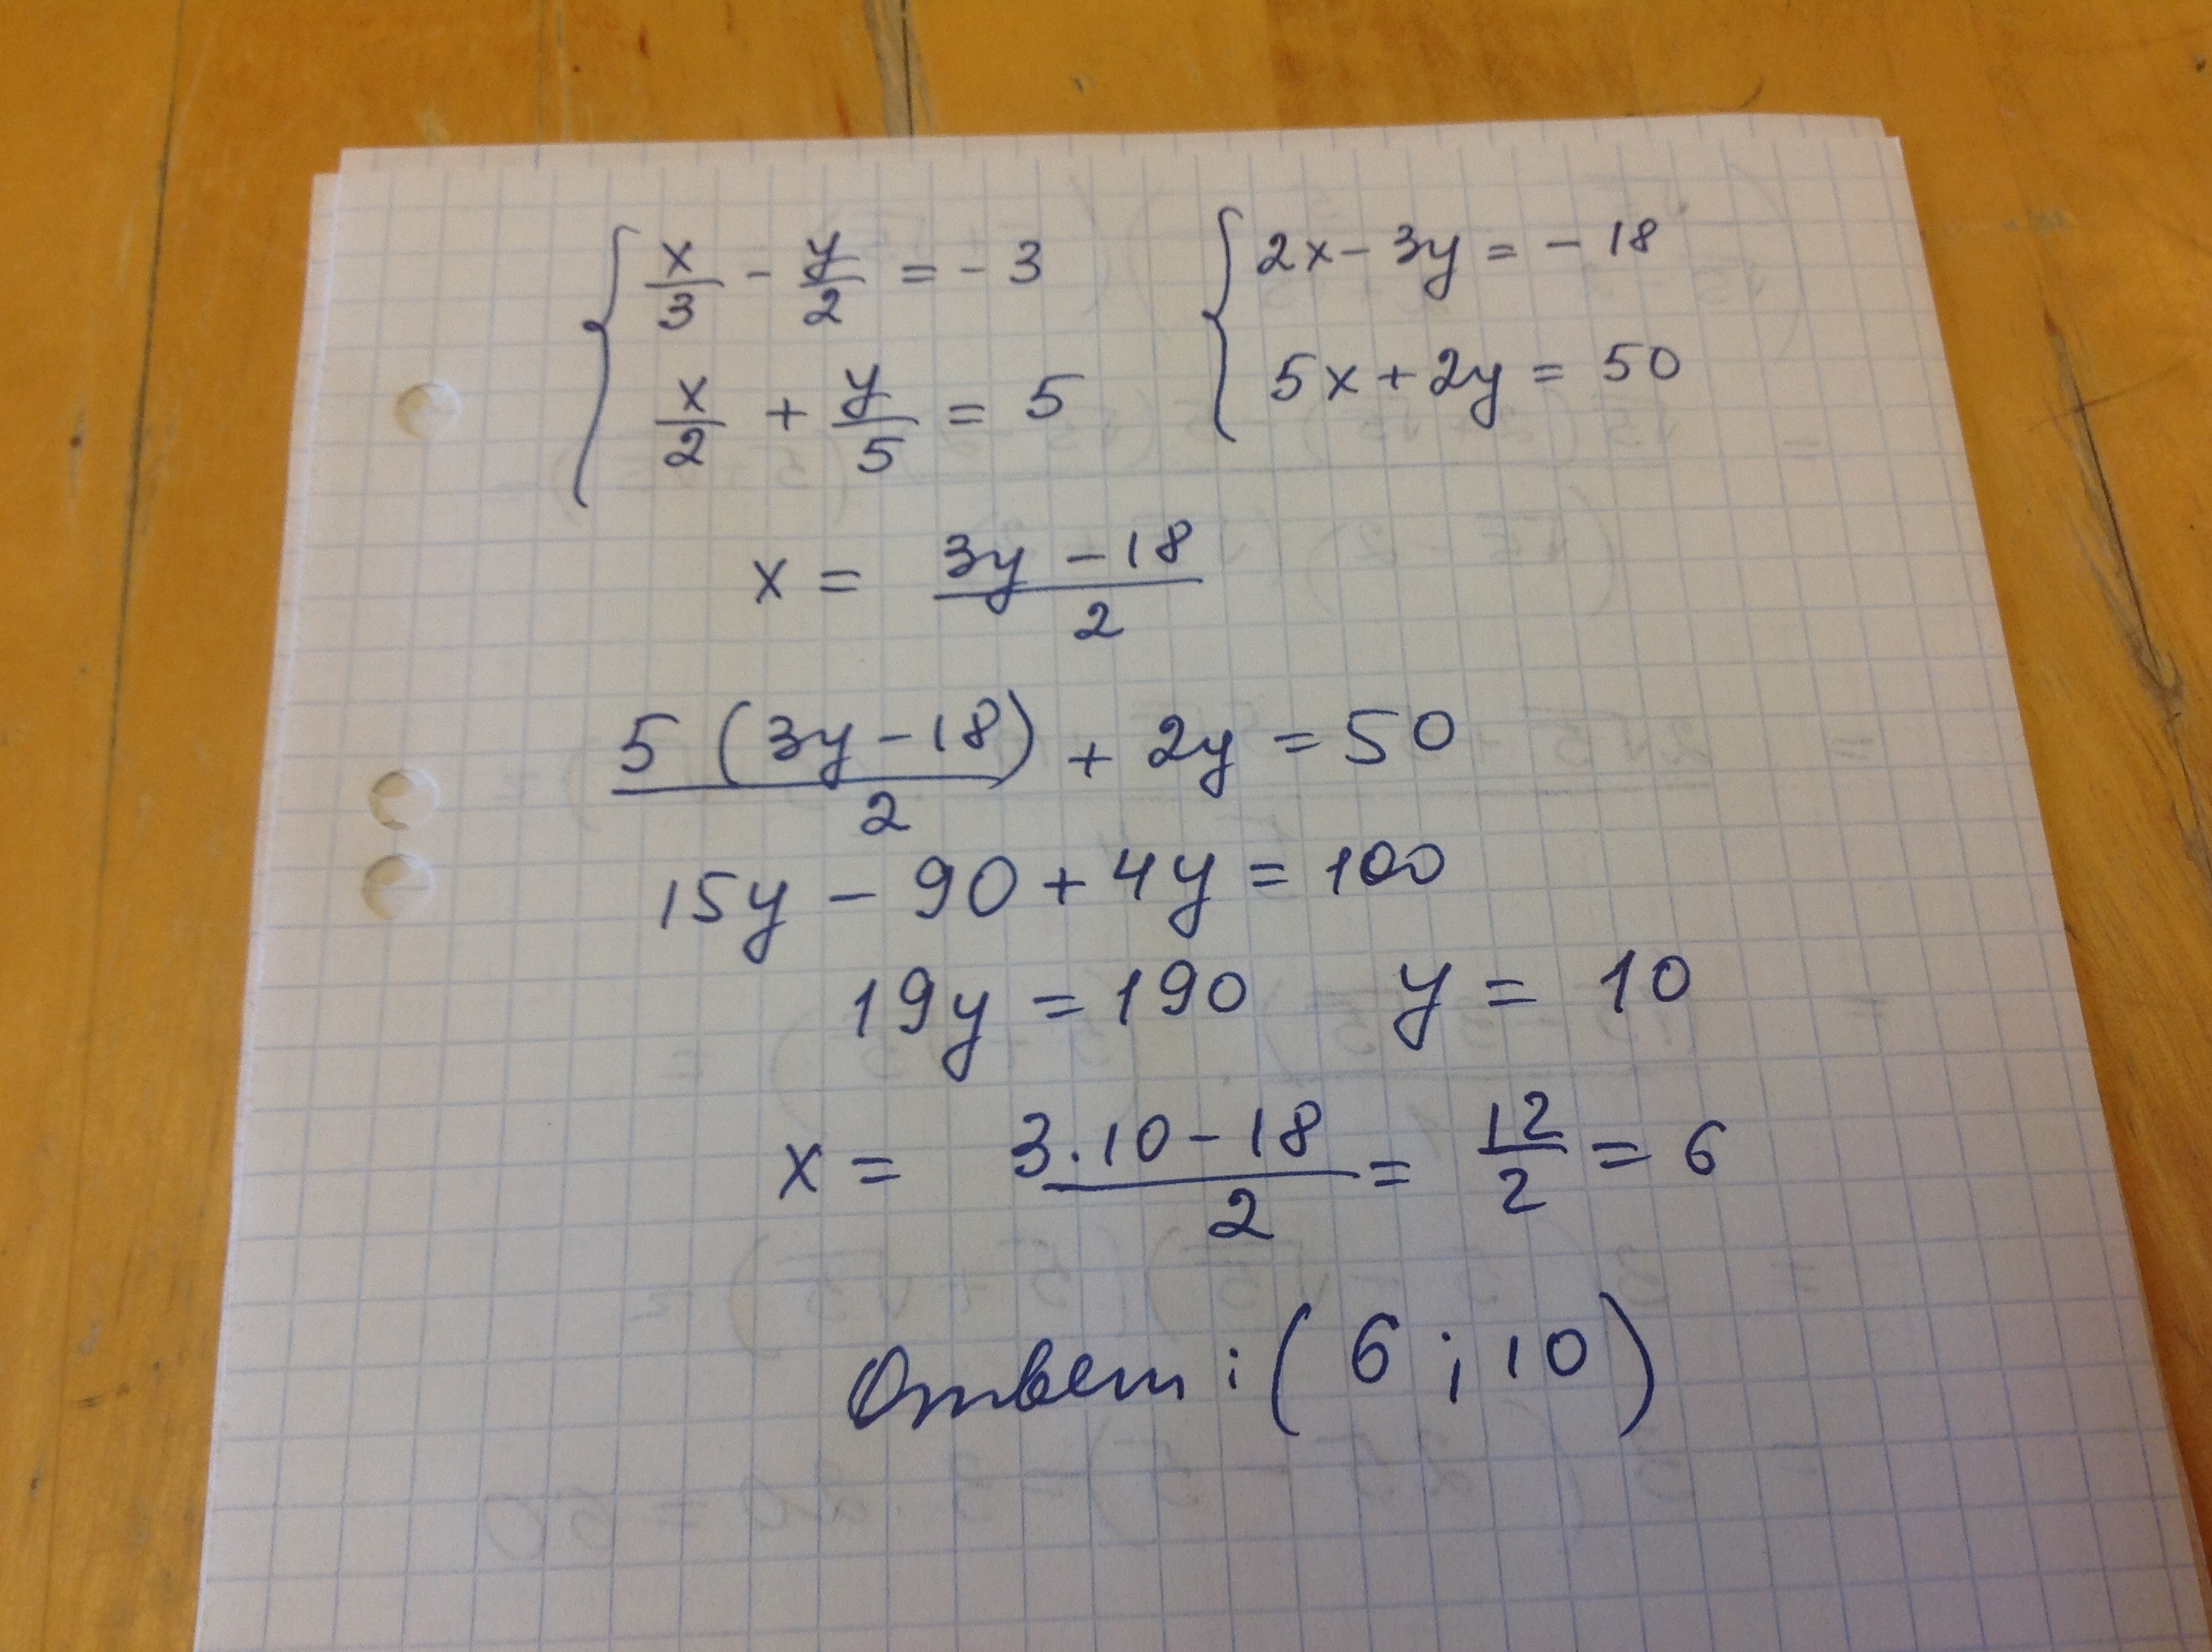 { x/3 - y/2 = - 3 { 2x - 3y = - 18
x/2 + y/5 = 5 5x + 2y = 50
x = (3y - 18)/2
5 (3y - 18)/2 + 2y = 50
15y - 90 + 4y = 100
19y = 190 y = 10
x = (3·10 - 18)/2 = 12/2 = 6
Ответ: (6 ; 10)